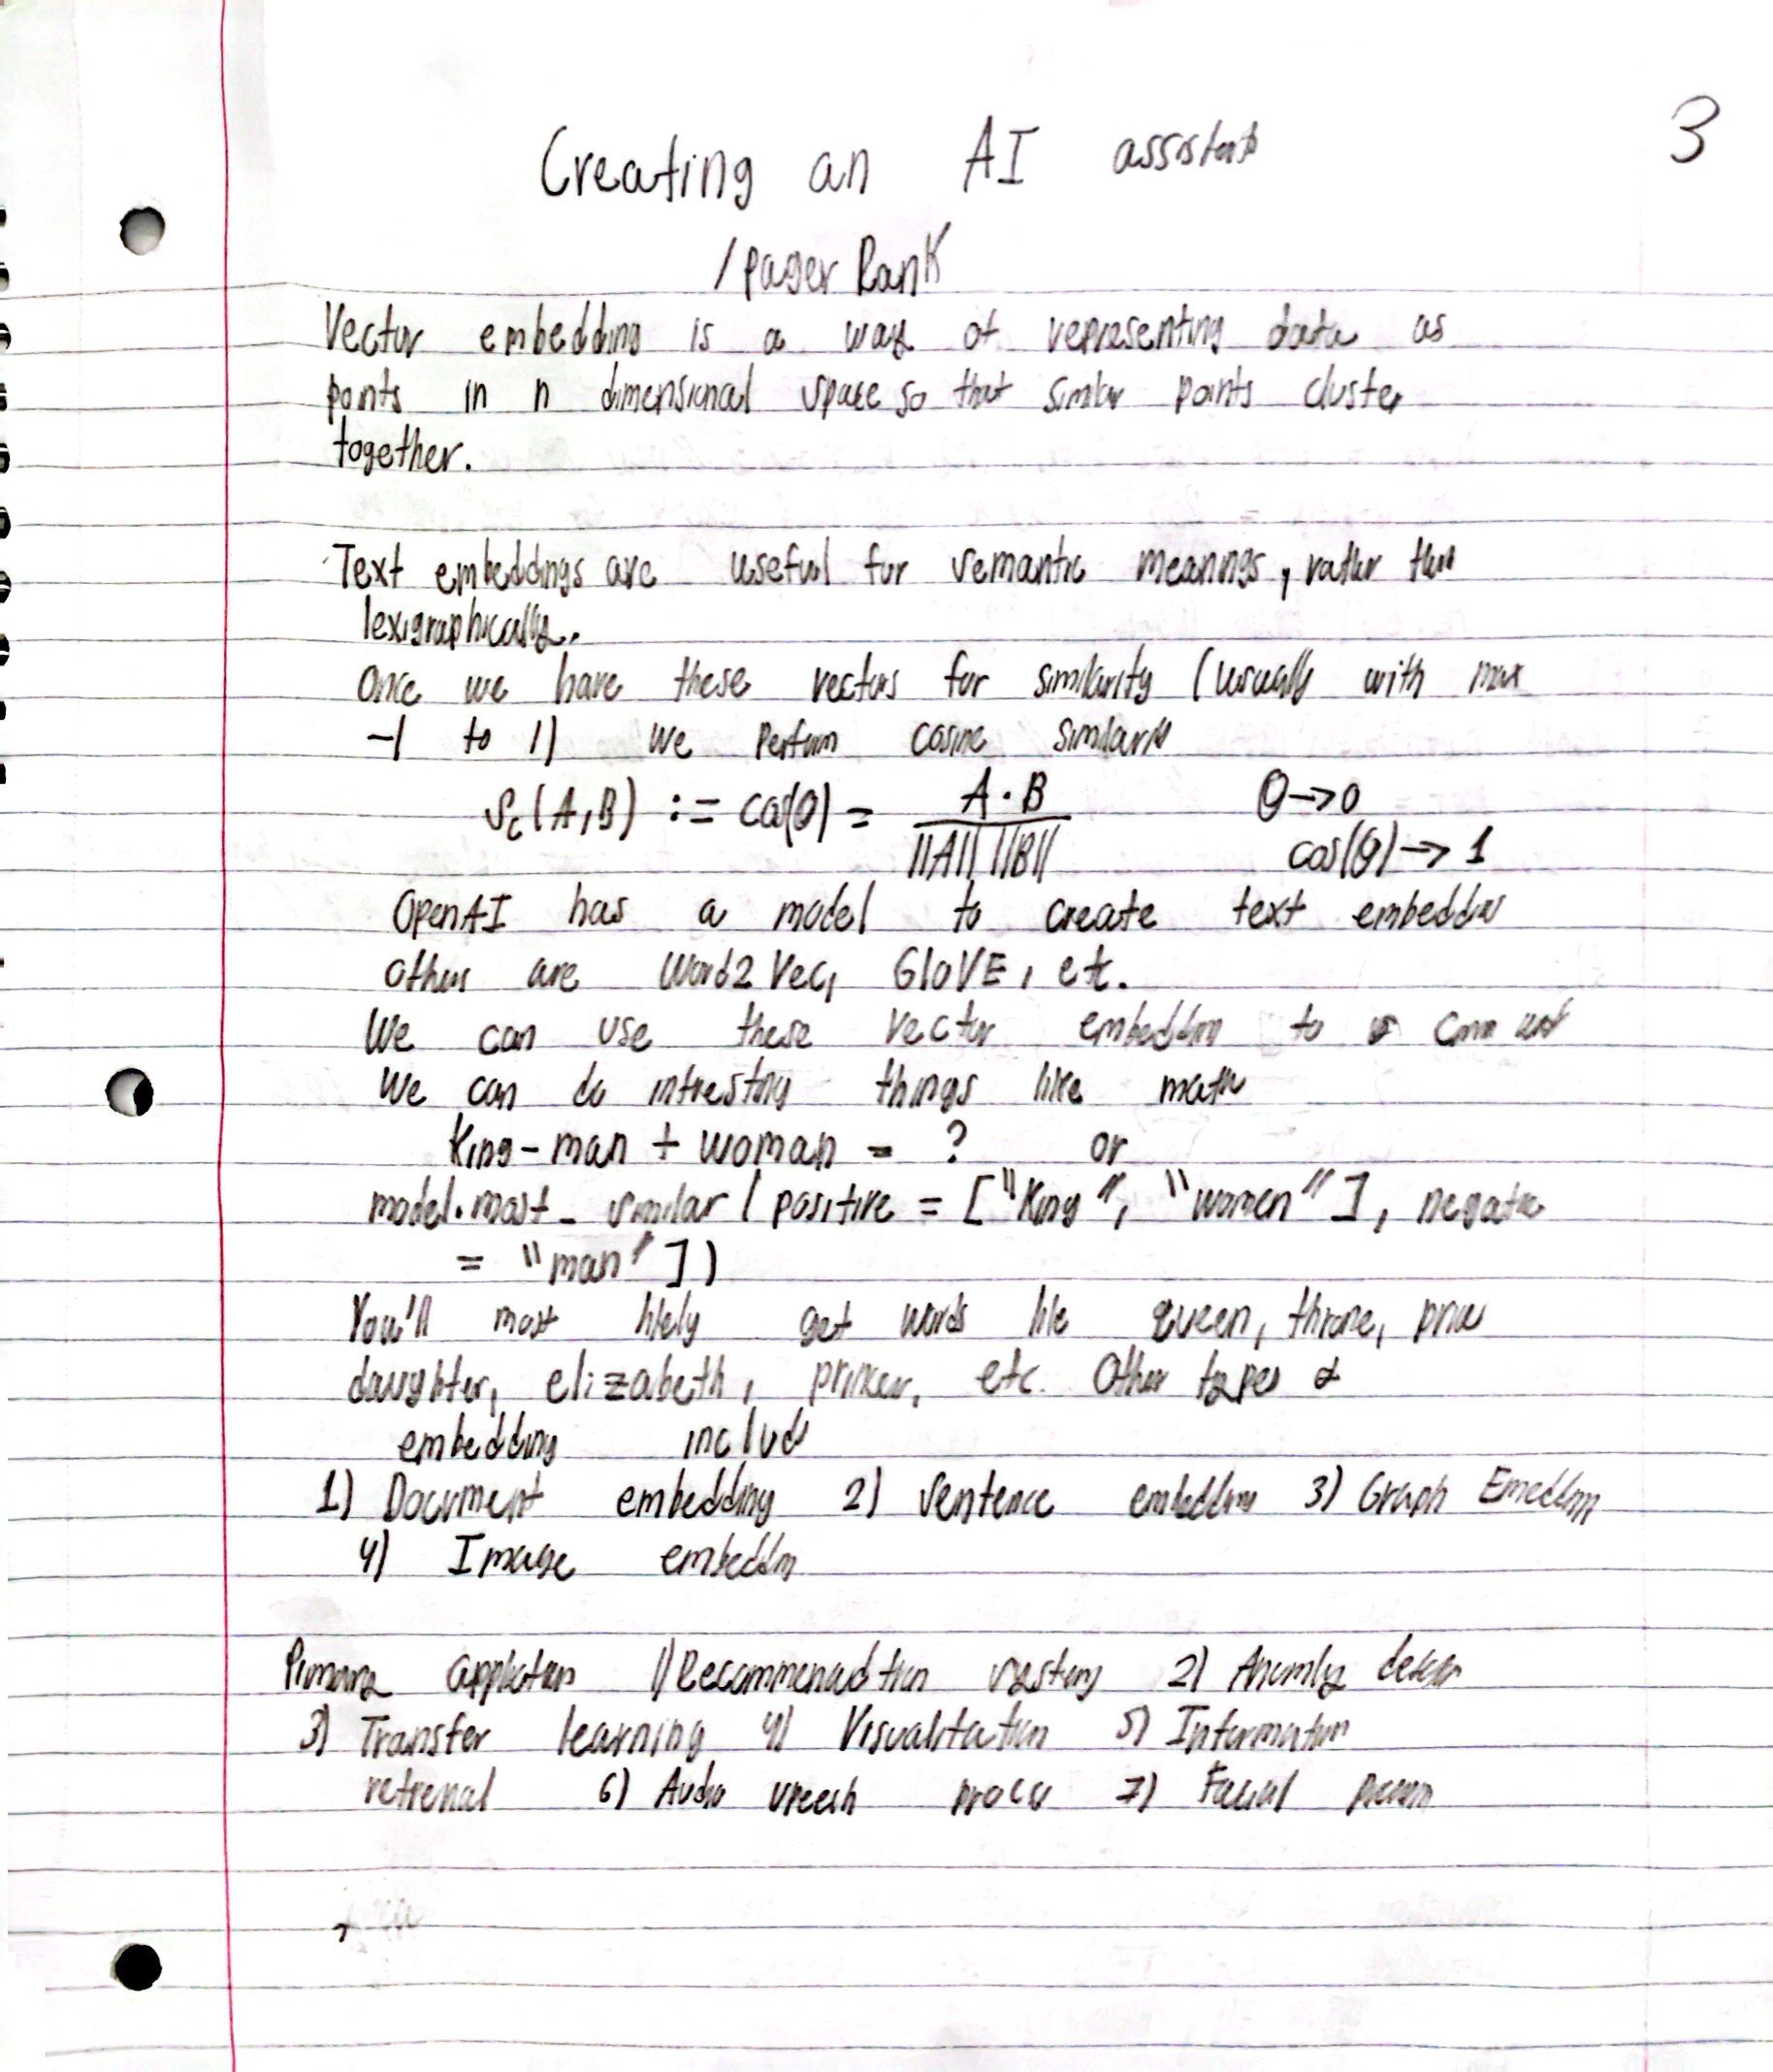 3
Creating an AI assistant
/ Pager Rank
Vector embedding is a way of representing data as
points in n dimensional space so that similar points cluster
together.
Text embeddings are useful for semantic meanings, rather than
lexigraphically.
Once we have these vectors for similarity (usually with max
-1 to 1) we perform cosine similarity
Sc(A,B) := cos(θ) = A·B / ||A|| ||B|| θ→0
cos(θ)→1
OpenAI has a model to create text embeddings
others are Word2Vec, GloVE, etc.
We can use these vector embedding to
We can do intresting things like math
King - man + woman = ? or
model.most_similar(positive = ["King", "women"], negative
= "man"])
You'll most likely get words like queen, throne,
daughter, elizabeth, etc. Other types of
embedding include
1) Document embedding 2) Sentence embedding 3) Graph Emedding
4) Image embedding
Primary application 1) Recommendation 2) Anomly
3) Transfer learning 4) Visualitation 5) Information
retrieval 6) Audio speech process 7) Facial